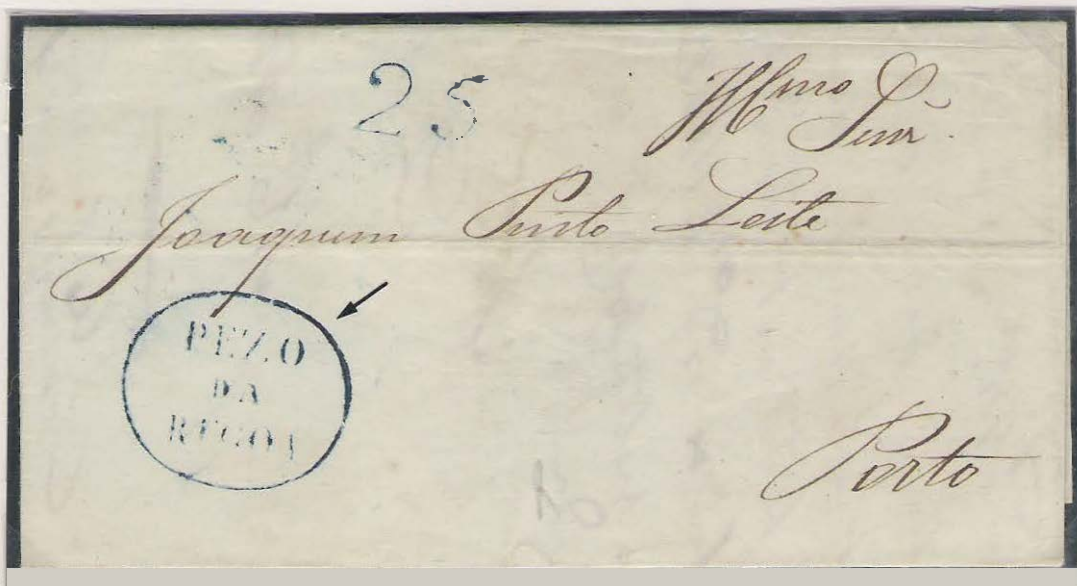 25
Illmo Snr.
Joaquim Pinto Leite
PEZO
DA
REGOA
Porto